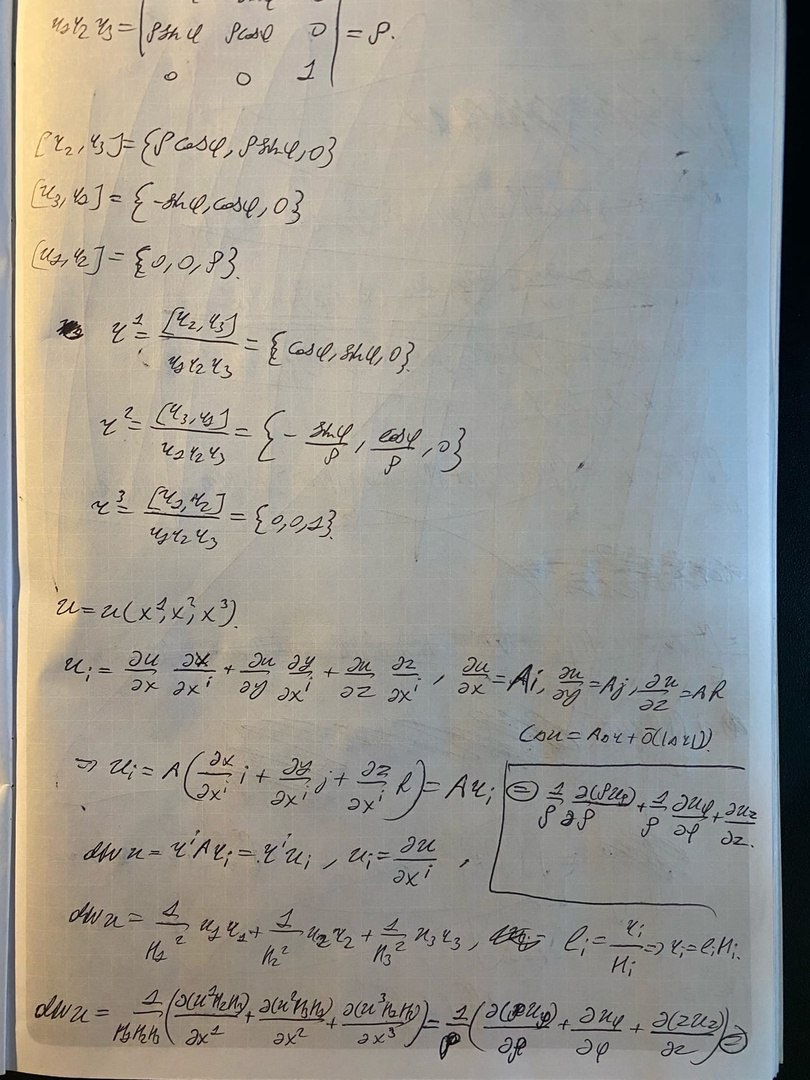 r₁r₂r₃ = | ρsinφ ρcosφ 0 | = ρ.
0 0 1
[r₂, r₃] = {ρcosφ, ρsinφ, 0}
[r₃, r₁] = {-sinφ, cosφ, 0}
[r₁, r₂] = {0, 0, ρ}.
r¹ = [r₂, r₃] / r₁r₂r₃ = {cosφ, sinφ, 0}.
r² = [r₃, r₁] / r₁r₂r₃ = {- sinφ/ρ, cosφ/ρ, 0}
r³ = [r₁, r₂] / r₁r₂r₃ = {0, 0, 1}.
u = u(x¹, x², x³).
uᵢ = ∂u/∂x ∂x/∂xⁱ + ∂u/∂y ∂y/∂xⁱ + ∂u/∂z ∂z/∂xⁱ, ∂u/∂x = Ai, ∂u/∂y = Aj, ∂u/∂z = Ak
(Δu = AΔr + ō(|Δr|)).
⇒ uᵢ = A(∂x/∂xⁱ i + ∂y/∂xⁱ j + ∂z/∂xⁱ k) = Arᵢ
⊜ 1/ρ ∂(ρu_ρ)/∂ρ + 1/ρ ∂u_φ/∂φ + ∂u_z/∂z.
div u = rⁱArᵢ = rⁱuᵢ, uᵢ = ∂u/∂xⁱ,
div u = 1/H₁² u₁r₁ + 1/H₂² u₂r₂ + 1/H₃² u₃r₃, eᵢ = rᵢ/Hᵢ ⇒ rᵢ = eᵢHᵢ.
div u = 1/H₁H₂H₃ (∂(u¹H₂H₃)/∂x¹ + ∂(u²H₃H₁)/∂x² + ∂(u³H₁H₂)/∂x³) = 1/ρ (∂(ρu_ρ)/∂ρ + ∂u_φ/∂φ + ∂(zu_z)/∂z) ⊜